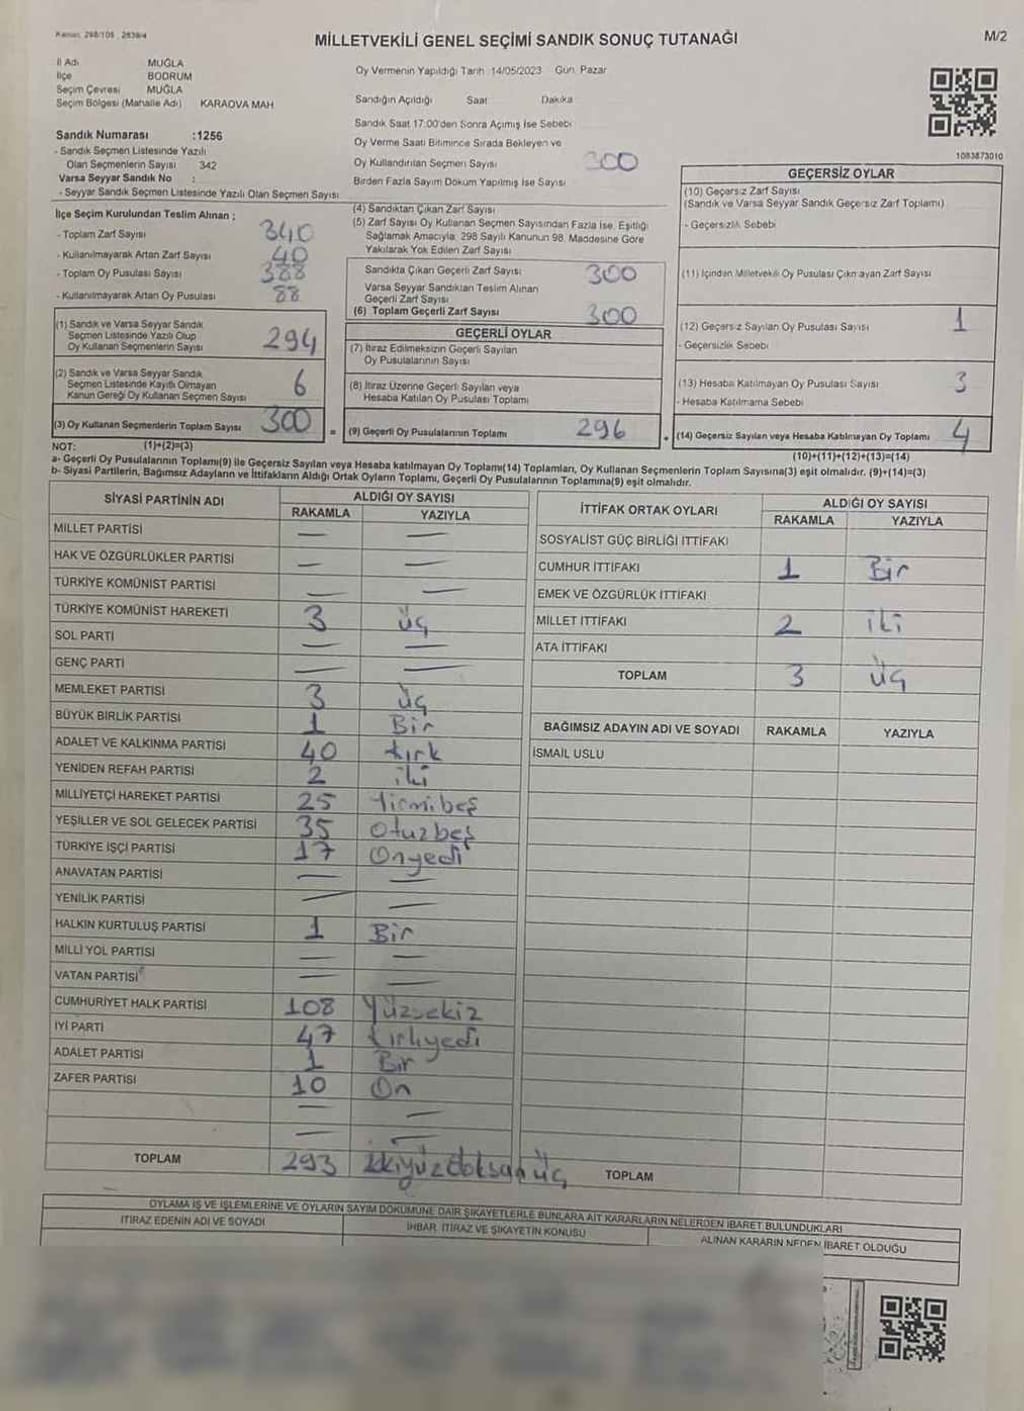 Kanun: 298/105 , 2839/4
MİLLETVEKİLİ GENEL SEÇİMİ SANDIK SONUÇ TUTANAĞI
M/2
İl Adı MUĞLA
İlçe BODRUM
Seçim Çevresi MUĞLA
Seçim Bölgesi (Mahalle Adı) KARAOVA MAH
Sandık Numarası :1256
- Sandık Seçmen Listesinde Yazılı
Olan Seçmenlerin Sayısı 342
Varsa Seyyar Sandık No :
- Seyyar Sandık Seçmen Listesinde Yazılı Olan Seçmen Sayısı
Oy Vermenin Yapıldığı Tarih :14/05/2023 Gün: Pazar
Sandığın Açıldığı Saat Dakika
Sandık Saat 17:00'den Sonra Açılmış İse Sebebi
Oy Verme Saati Bitimince Sırada Bekleyen ve
Oy Kullandırılan Seçmen Sayısı 300
Birden Fazla Sayım Döküm Yapılmış İse Sayısı
1083873010
İlçe Seçim Kurulundan Teslim Alınan ;
- Toplam Zarf Sayısı 340
- Kullanılmayarak Artan Zarf Sayısı 40
- Toplam Oy Pusulası Sayısı 388
- Kullanılmayarak Artan Oy Pusulası 88
(1) Sandık ve Varsa Seyyar Sandık
Seçmen Listesinde Yazılı Olup
Oy Kullanan Seçmenlerin Sayısı 294
(2) Sandık ve Varsa Seyyar Sandık
Seçmen Listesinde Kayıtlı Olmayan
Kanun Gereği Oy Kullanan Seçmen Sayısı 6
(3) Oy Kullanan Seçmenlerin Toplam Sayısı 300
(4) Sandıktan Çıkan Zarf Sayısı
(5) Zarf Sayısı Oy Kullanan Seçmen Sayısından Fazla İse, Eşitliği
Sağlamak Amacıyla; 298 Sayılı Kanunun 98. Maddesine Göre
Yakılarak Yok Edilen Zarf Sayısı
Sandıkta Çıkan Geçerli Zarf Sayısı 300
Varsa Seyyar Sandıktan Teslim Alınan
Geçerli Zarf Sayısı
(6) Toplam Geçerli Zarf Sayısı 300
GEÇERLİ OYLAR
(7) İtiraz Edilmeksizin Geçerli Sayılan
Oy Pusulalarının Sayısı
(8) İtiraz Üzerine Geçerli Sayılan veya
Hesaba Katılan Oy Pusulası Toplamı
= (9) Geçerli Oy Pusulalarının Toplamı 296
GEÇERSİZ OYLAR
(10) Geçersiz Zarf Sayısı
(Sandık ve Varsa Seyyar Sandık Geçersiz Zarf Toplamı)
- Geçersizlik Sebebi
(11) İçinden Milletvekili Oy Pusulası Çıkmayan Zarf Sayısı
(12) Geçersiz Sayılan Oy Pusulası Sayısı 1
- Geçersizlik Sebebi
(13) Hesaba Katılmayan Oy Pusulası Sayısı 3
- Hesaba Katılmama Sebebi
+ (14) Geçersiz Sayılan veya Hesaba Katılmayan Oy Toplamı 4
NOT: (1)+(2)=(3) (10)+(11)+(12)+(13)=(14)
a- Geçerli Oy Pusulalarının Toplamı(9) ile Geçersiz Sayılan veya Hesaba katılmayan Oy Toplamı(14) Toplamları, Oy Kullanan Seçmenlerin Toplam Sayısına(3) eşit olmalıdır. (9)+(14)=(3)
b- Siyasi Partilerin, Bağımsız Adayların ve İttifakların Aldığı Ortak Oyların Toplamı, Geçerli Oy Pusulalarının Toplamına(9) eşit olmalıdır.
SİYASİ PARTİNİN ADI ALDIĞI OY SAYISI
RAKAMLA YAZIYLA
MİLLET PARTİSİ — —
HAK VE ÖZGÜRLÜKLER PARTİSİ — —
TÜRKİYE KOMÜNİST PARTİSİ — —
TÜRKİYE KOMÜNİST HAREKETİ 3 Üç
SOL PARTİ — —
GENÇ PARTİ — —
MEMLEKET PARTİSİ 3 Üç
BÜYÜK BİRLİK PARTİSİ 1 Bir
ADALET VE KALKINMA PARTİSİ 40 Kırk
YENİDEN REFAH PARTİSİ 2 iki
MİLLİYETÇİ HAREKET PARTİSİ 25 Yirmibeş
YEŞİLLER VE SOL GELECEK PARTİSİ 35 Otuzbeş
TÜRKİYE İŞÇİ PARTİSİ 17 Onyedi
ANAVATAN PARTİSİ — —
YENİLİK PARTİSİ — —
HALKIN KURTULUŞ PARTİSİ 1 Bir
MİLLİ YOL PARTİSİ — —
VATAN PARTİSİ — —
CUMHURİYET HALK PARTİSİ 108 Yüzsekiz
İYİ PARTİ 47 Kırkyedi
ADALET PARTİSİ 1 Bir
ZAFER PARTİSİ 10 On
— —
— —
TOPLAM 293 İkiyüzdoksanüç
İTTİFAK ORTAK OYLARI ALDIĞI OY SAYISI
RAKAMLA YAZIYLA
SOSYALİST GÜÇ BİRLİĞİ İTTİFAKI
CUMHUR İTTİFAKI 1 Bir
EMEK VE ÖZGÜRLÜK İTTİFAKI
MİLLET İTTİFAKI 2 iki
ATA İTTİFAKI
TOPLAM 3 Üç
BAĞIMSIZ ADAYIN ADI VE SOYADI RAKAMLA YAZIYLA
İSMAİL USLU
TOPLAM
OYLAMA İŞ VE İŞLEMLERİNE VE OYLARIN SAYIM DÖKÜMÜNE DAİR ŞİKAYETLERLE BUNLARA AİT KARARLARIN NELERDEN İBARET BULUNDUKLARI
İTİRAZ EDENİN ADI VE SOYADI İHBAR, İTİRAZ VE ŞİKAYETİN KONUSU ALINAN KARARIN NEDEN İBARET OLDUĞU